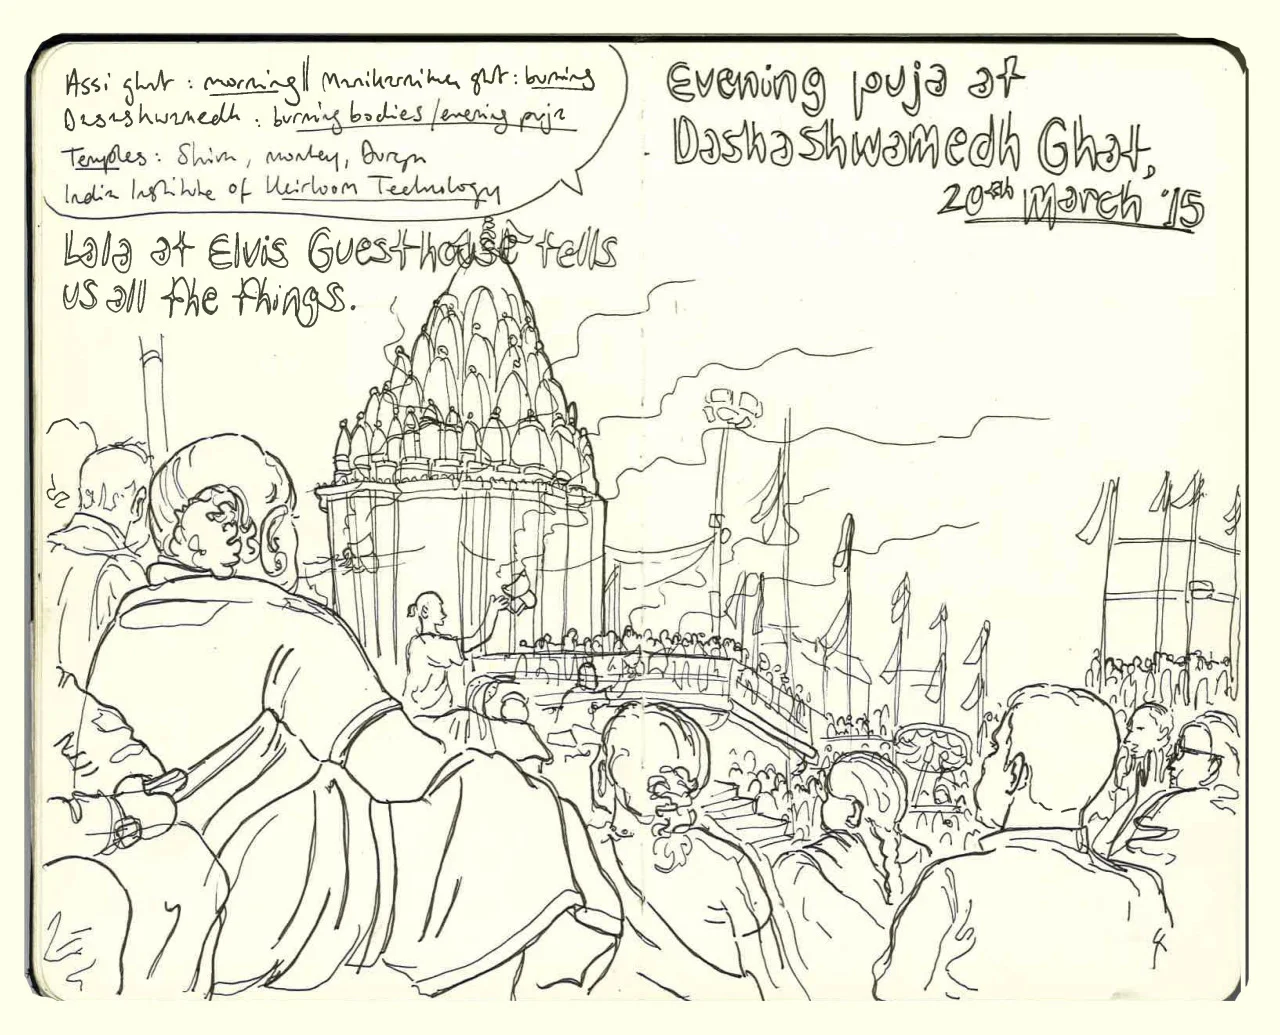 Assi ghat : morning || Manikarnika ght : burning
Dasashwamedh : burning bodies / evening puja
Temples : Shiva, monkey, Durga
India Institute of Heirloom Technology
Lala at Elvis Guesthouse tells
us all the things.
Evening puja at
Dashashwamedh Ghat,
20th March '15